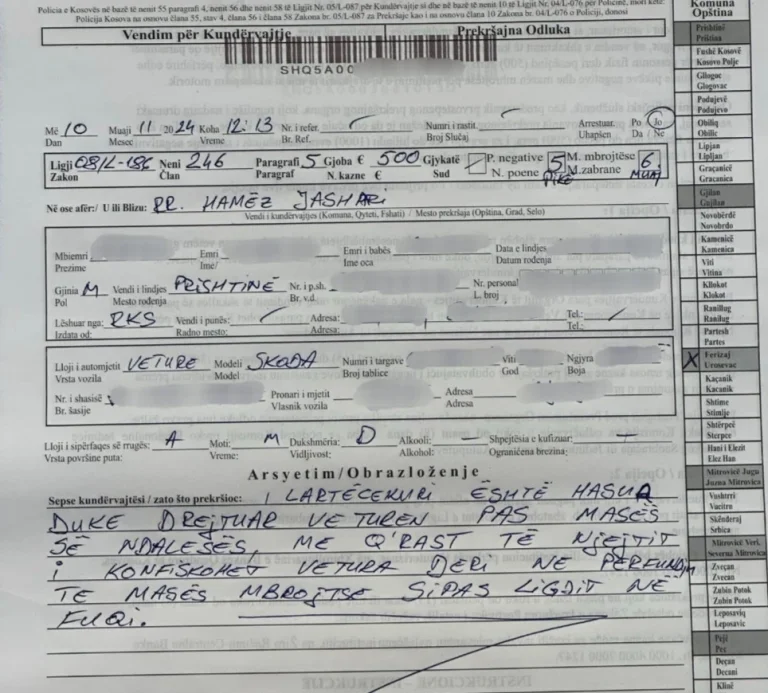 Policia e Kosovës në bazë të nenit 55 paragrafi 4, nenit 56 dhe nenit 58 të Ligjit Nr. 05/L-087 për Kundërvajtje si dhe në bazë të nenit 10 të Ligjit Nr. 04/L-076 për Policinë, mori këtë:
Policija Kosova na osnovu člana 55, stav 4, člana 56 i člana 58 Zakona br. 05/L-087 za Prekršaje kao i na osnovu člana 10 Zakona br. 04/L-076 o Policiji, donosi
Vendim për Kundërvajtje Prekršajna Odluka
SHQ5A00
Më 10 Muaji 11 2024 Koha 12:13 Nr. i refer. Numri i rastit. Arrestuar. Po Jo
Dan Mesec Vreme Br. Ref. Broj Slučaj Uhapšen Da / Ne
Ligji 08/L-186 Neni 246 Paragrafi 5 Gjoba € 500 Gjykatë P. negative 5 M. mbrojtëse 6
Zakon Član Paragraf N. kazne € Sud N. poene PIKË M.zabrane MUAJ
Në ose afër:/ U ili Blizu: RR. HAMËZ JASHARI
Vendi i kundërvajtjes (Komuna, Qyteti, Fshati) / Mesto prekršaja (Opština, Grad, Selo)
Mbiemri Emri Emri i babës Data e lindjes
Prezime Ime/ Ime oca Datum rođenja
Gjinia M Vendi i lindjes PRISHTINË Nr. i p.sh. Nr. personal
Pol Mesto rođenja Br. v.d. L. broj
Lëshuar nga: RKS Vendi i punës: Adresa: Tel.:
Izdata od: Radno mesto: Adresa: Tel.:
Lloji i automjetit VETURE Modeli SKODA Numri i targave Viti Ngjyra
Vrsta vozila Model Broj tablice God Boja
Nr. i shasisë Pronari i mjetit Adresa
Br. šasije Vlasnik vozila Adresa
Lloji i sipërfaqes së rrugës: A Moti: M Dukshmëria: D Alkooli: Shpejtësia e kufizuar:
Vrsta površine puta: Vreme: Vidljivost: Alkohol: Ograničena brezina:
Arsyetim/Obrazloženje
Sepse kundërvajtësi / zato što prekršioc: I LARTËCEKURI ËSHTË HASUR
DUKE DREJTUAR VETUREN PAS MASËS
SË NDALESËS, ME Q'RAST TË NJEJTIT
I KONFISKOHET VETURA DERI NË PËRFUNDIM
TE MASËS MBROJTSE SIPAS LIGJIT NË
FUQI.
Komuna
Opština
Prishtinë
Priština
Fushë Kosovë
Kosovo Polje
Gllogoc
Glogovac
Podujevë
Podujevo
Obiliq
Obilic
Lipjan
Lipljan
Graçanicë
Gracanica
Gjilan
Gnjilan
Novobërdë
Novobrdo
Kamenicë
Kamenica
Viti
Vitina
Kllokot
Klokot
Ranillug
Ranilug
Partesh
Partes
X Ferizaj
Urosevac
Kaçanik
Kacanik
Shtime
Stimlje
Shtërpcë
Sterpce
Hani i Elezit
Elez Han
Mitrovicë Jugu
Juzna Mitrovica
Vushtrri
Vucitrn
Skënderaj
Srbica
Mitrovicë Veri.
Severna Mitrovica
Zveçan
Zvecan
Zubin Potok
Zubin Potok
Leposaviq
Leposavic
Pejë
Pec
Deçan
Decani
Klinë